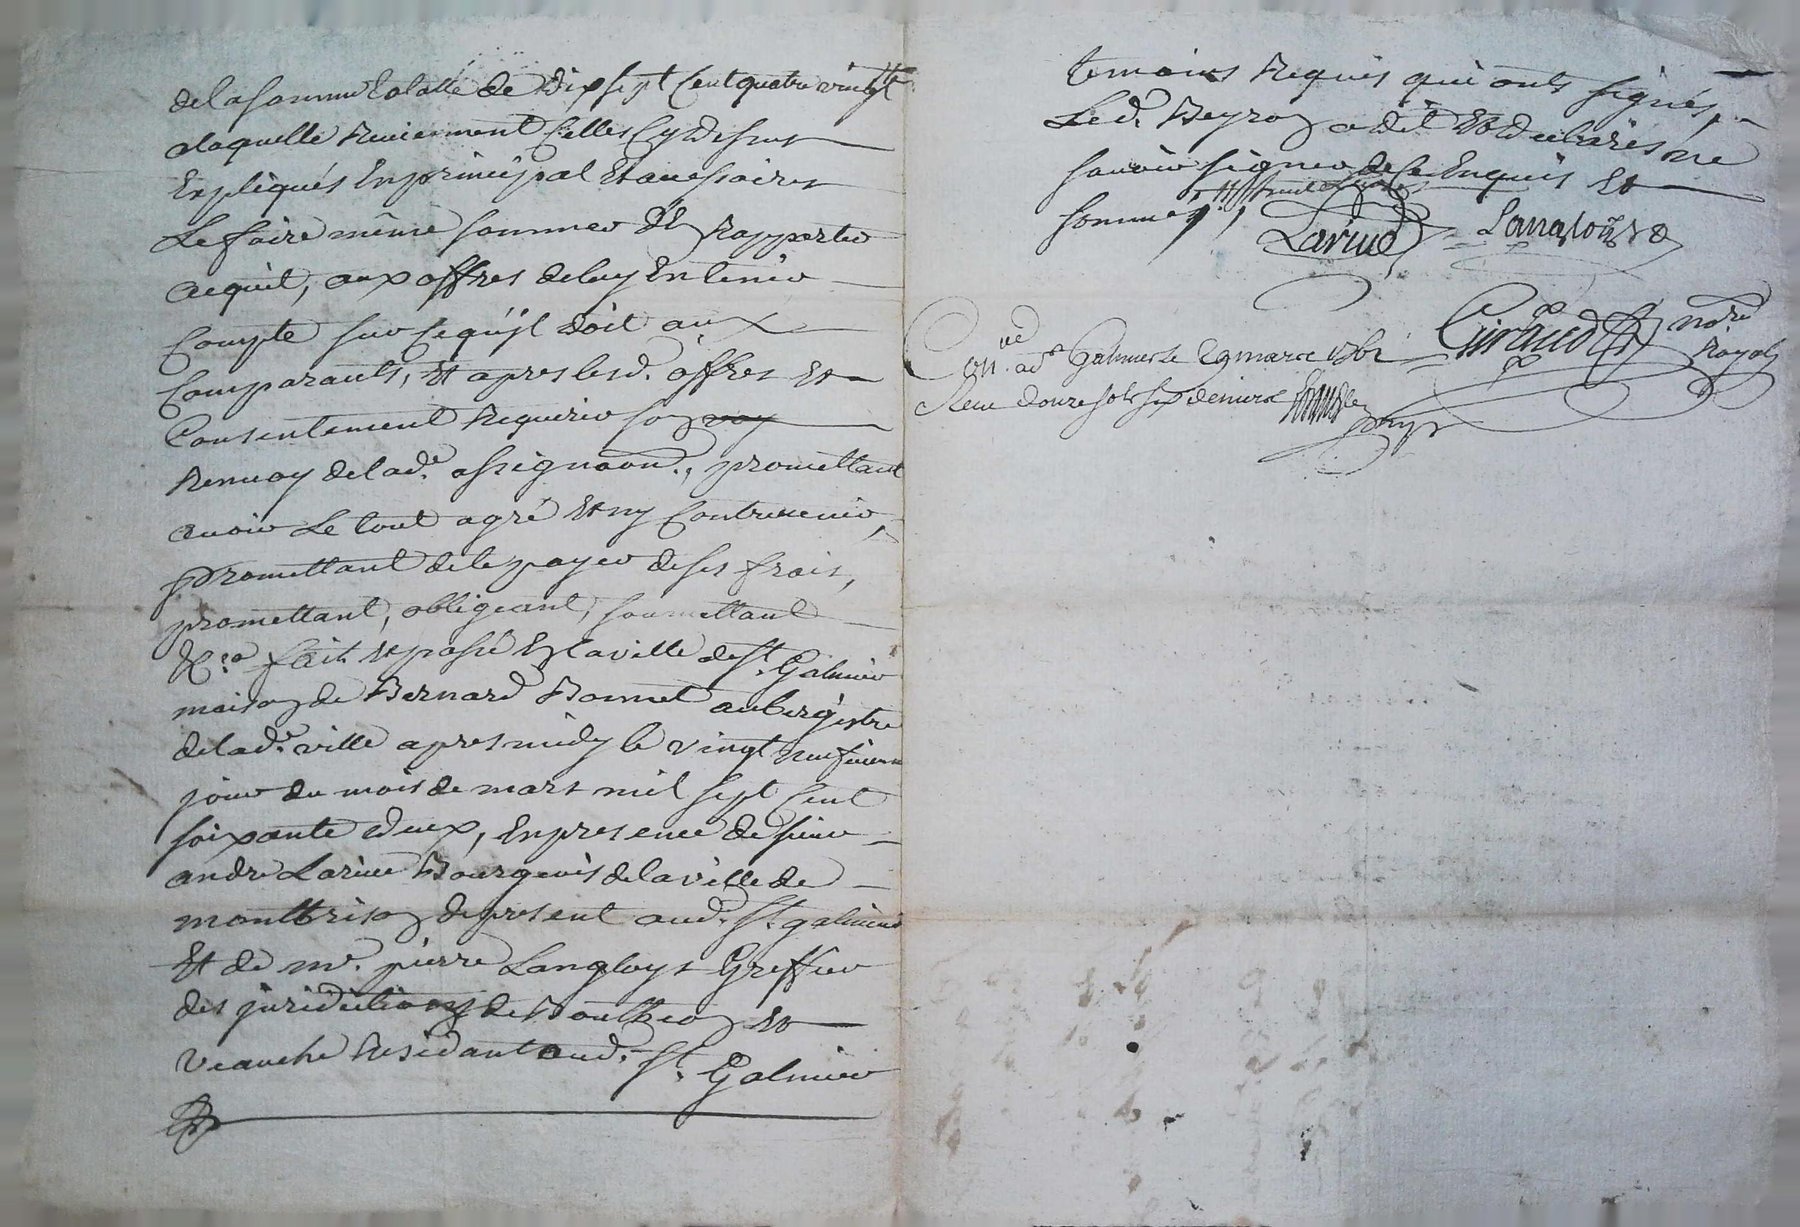 de la somme totalle de Dix sept Cent quatre vingt
a laquelle Reviennent Celles Cy dessus
Expliqués En principal Et accessoires
Le faire même sommer Et Rapporter
acquit, aux offres de luy En tenir
Compte sur ce qu'jl doit aux
Comparants, Et apres lesd. offres Et
Consentement Requerir son
Renvoy de lad.e assignaõn., promettant
avoir Le tout agré Et ny Contrevenir,
promettant de le payer de ses frais,
promettant, obligeant, soumettant
&c.a fait Et passé En la ville de St. Galmier
maison de Bernard Bonnet aubergiste
de lad.e ville apres midy le vingt neufieme
jour du mois de mars mil sept Cent
soixante deux, En presence de sieur
andré Larive Bourgeois de la ville de
montbrison de present aud. St. galmier
Et de mr. pierre Langloys Greffier
des juridictions de Bouttheon Et
Veauche Residant aud. St. Galmier
temoins Requis qui onts signés,
Led. Peyron a dit Et declarés ne
savoir signer de ce Enquis Et
sommé
Larive Langlois
Giraud no.re Royal
Con.lé ad St Galmier le 29 mars 1762
Reçu douze sols six deniers